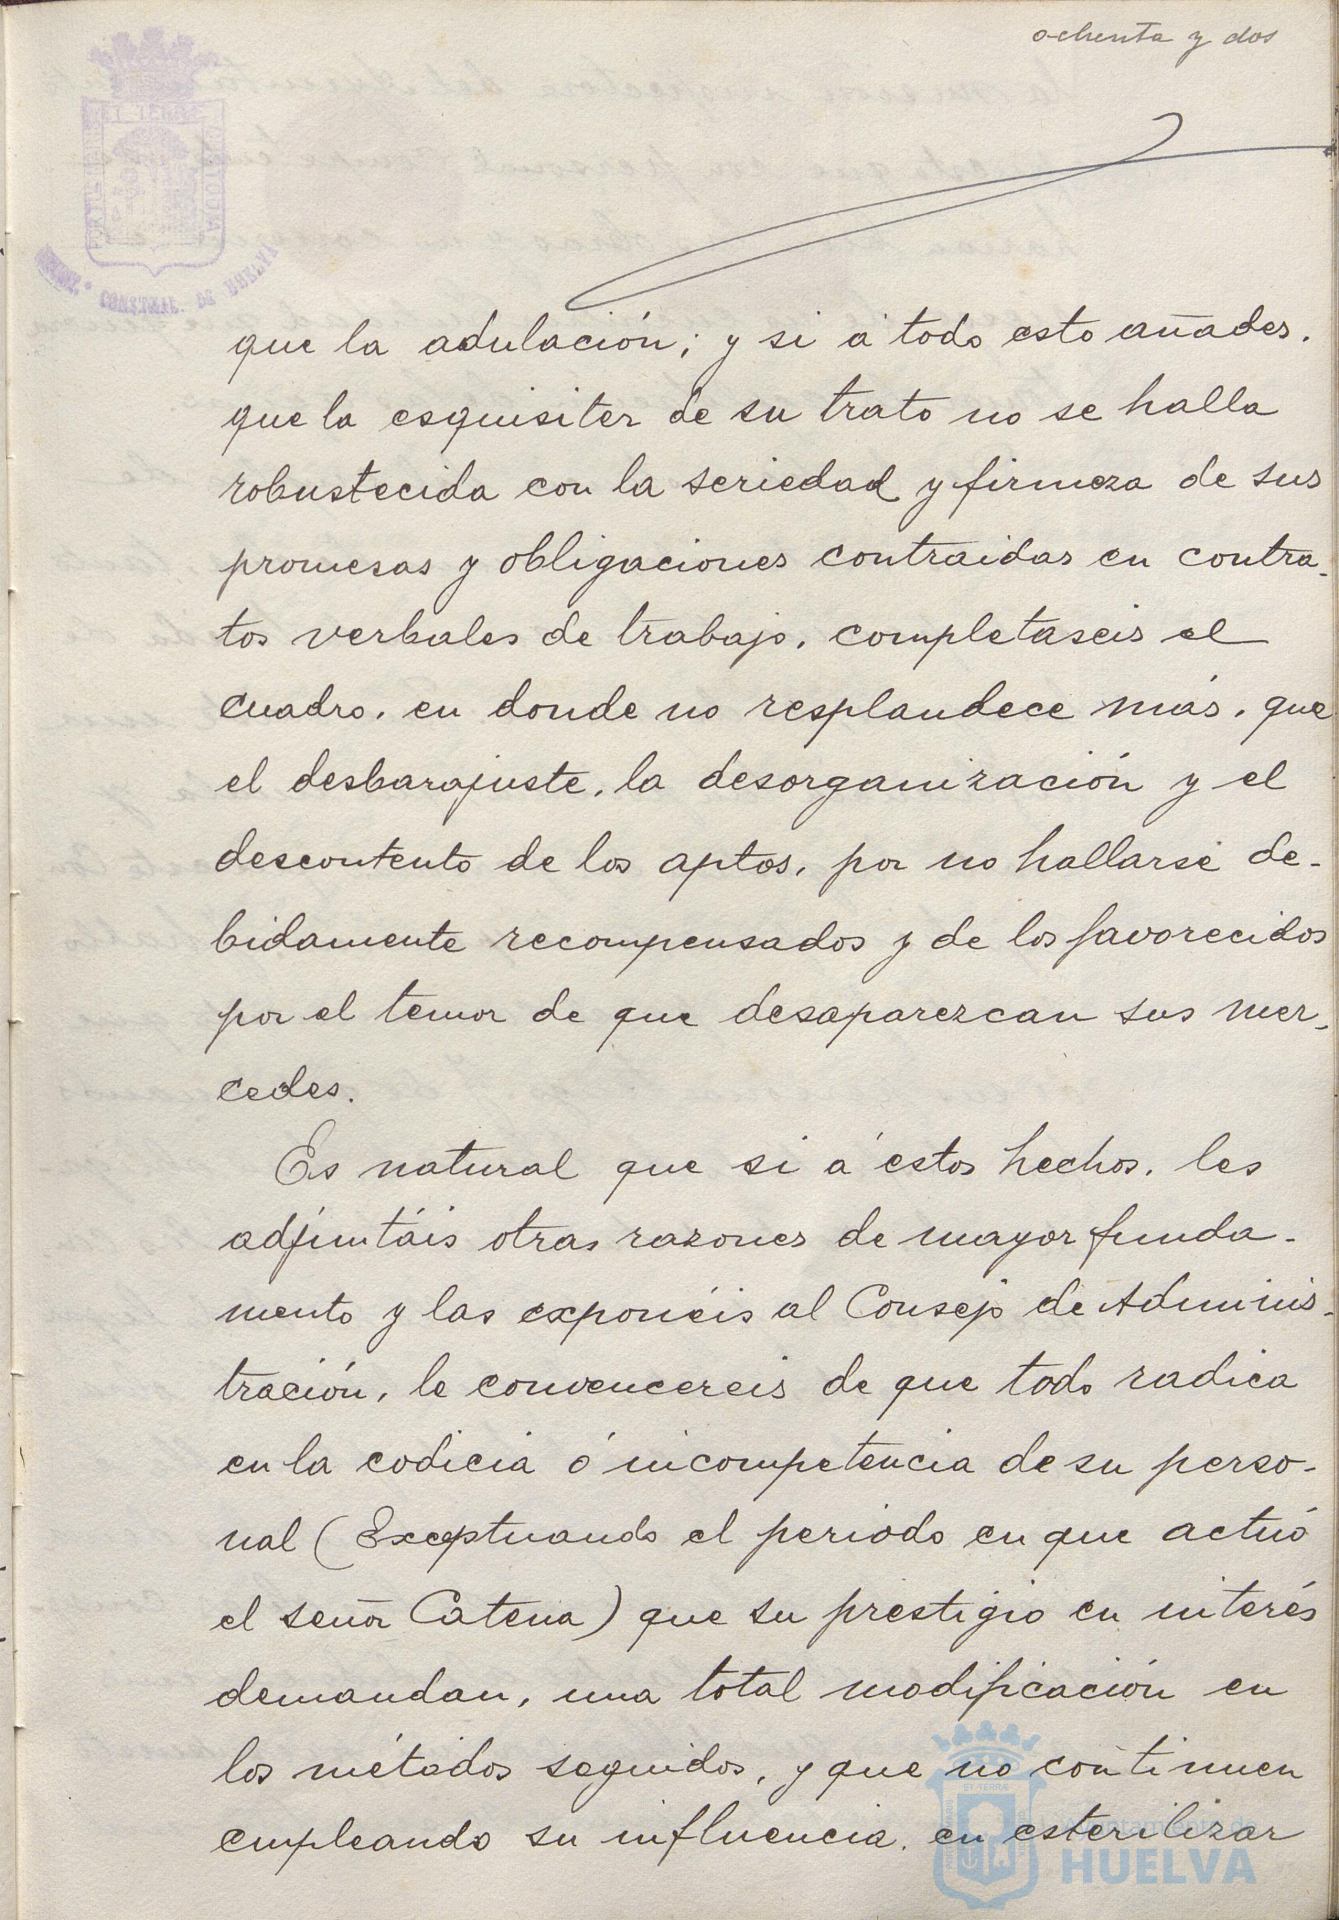 ochenta y dos
que la adulación; y si á todo esto añades.
que la esquisitez de su trato no se halla
robustecida con la seriedad y firmeza de sus
promesas y obligaciones contraidas en contra-
tos verbales de trabajo. completaseis el
cuadro. en donde no resplandece más. que
el desbarajuste. la desorganización y el
descontento de los aptos. por no hallarse de-
bidamente recompensados y de los favorecidos
por el temor de que desaparezcan sus mer-
cedes.
Es natural que si á estos hechos. les
adjuntáis otras razones de mayor funda-
mento y las exponéis al Consejo de Adminis-
tración, le convencereis de que todo radica
en la codicia ó incompetencia de su perso-
nal (Exceptuando el periodo en que actuó
el señor Catena) que su prestigio en interés
demandan, una total modificación en
los métodos seguidos, y que no continuen
empleando su influencia. en esterilizar
Ayuntamiento de
HUELVA